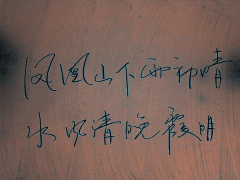 凤凰山下雨初晴
水风清晚霞明